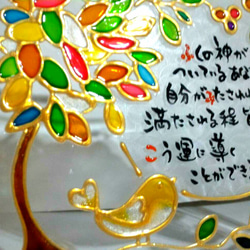 ふくの神が
ついているあ
自分がみたされ
満たされる程
こう運に導く
ことができ